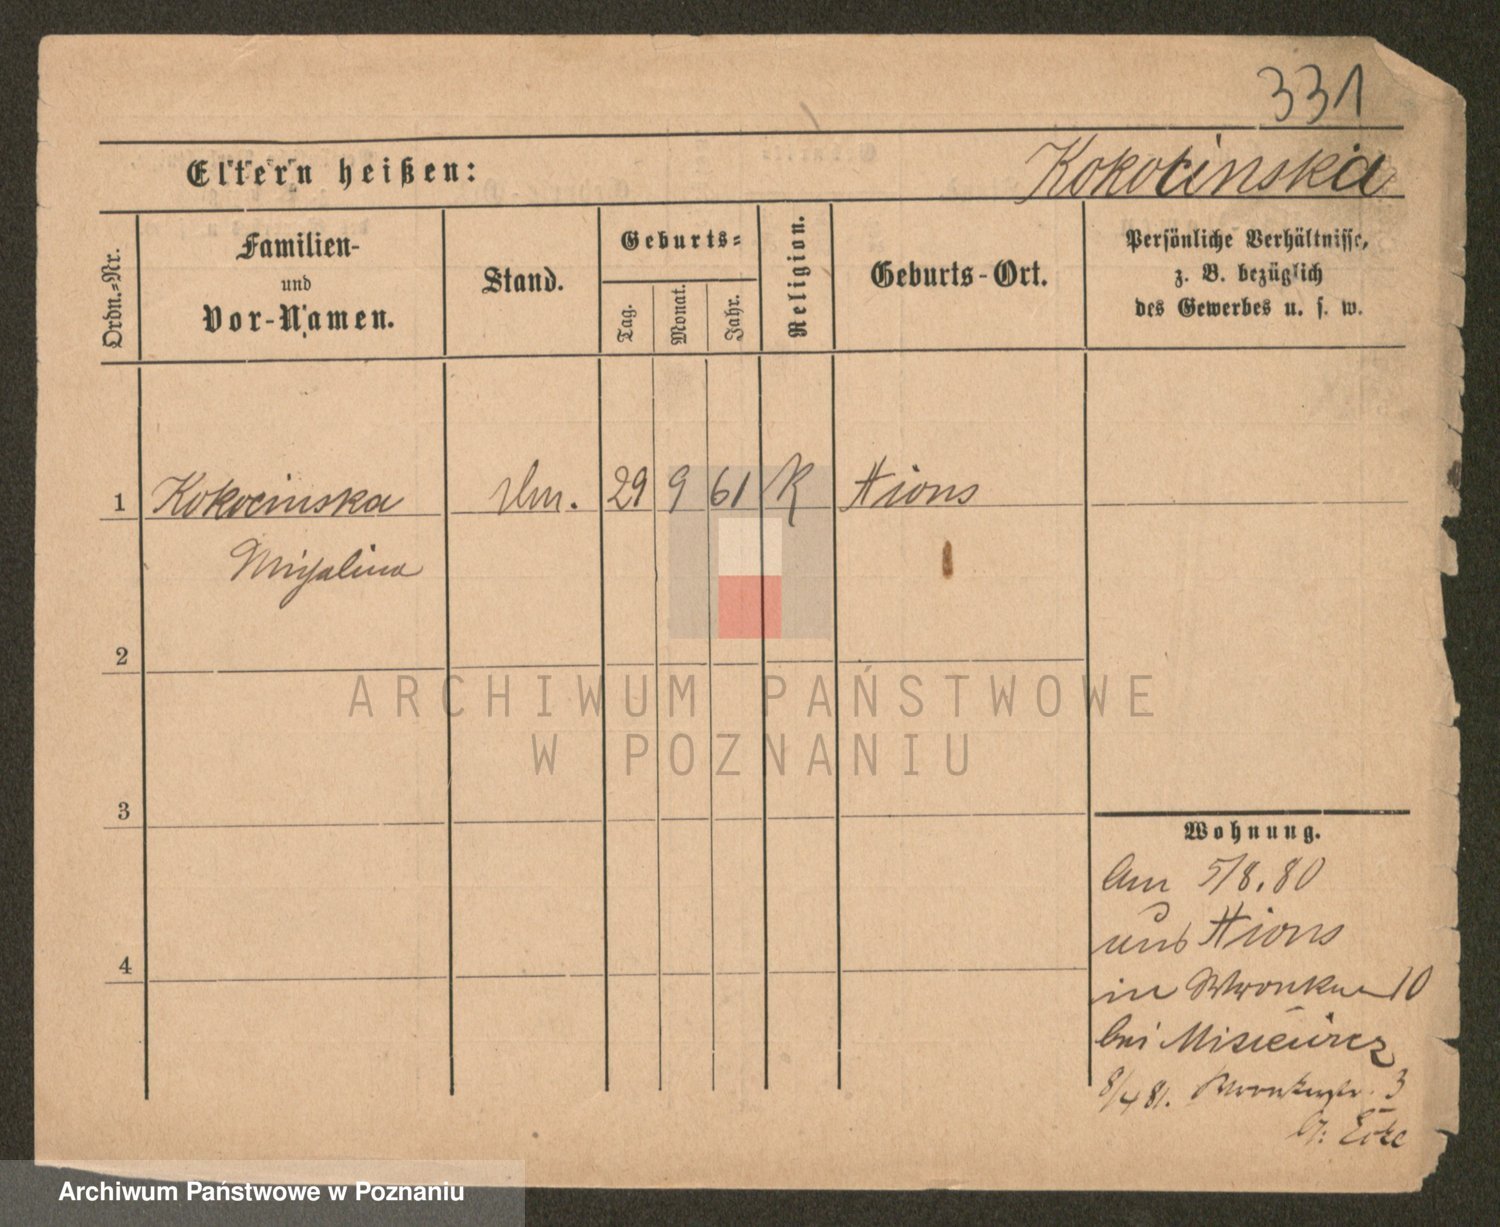 331
Eltern heißen:
Kokocinska
Ordn.-Nr.
Familien-
und
Vor-Namen.
Stand.
Geburts-
Tag.
Monat.
Jahr.
Religion.
Geburts-Ort.
Persönliche Verhältnisse,
z. B. bezüglich
des Gewerbes u. s. w.
1 Kokocinska 29 9 61 K Xions
2
3
4
ARCHIWUM PAŃSTWOWE
W POZNANIU
Wohnung.
Am 5/8.80
aus Xions
in 10
bei Misiewicz
8/4 81. 3
Archiwum Państwowe w Poznaniu